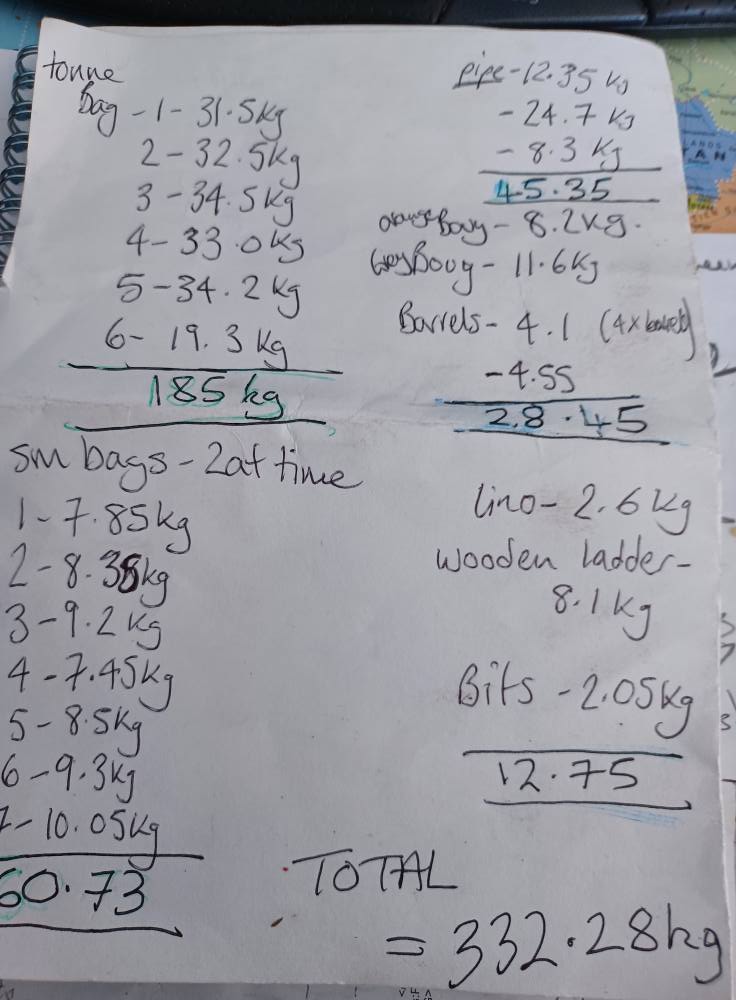 tonne
Bag - 1 - 31.5kg
2 - 32.5kg
3 - 34.5kg
4 - 33.0kg
5 - 34.2kg
6 - 19.3kg
185kg
sm bags - 2 at time
1 - 7.85kg
2 - 8.38kg
3 - 9.2kg
4 - 7.45kg
5 - 8.5kg
6 - 9.3kg
7 - 10.05kg
60.73
pipe - 12.35kg
- 24.7kg
- 8.3kg
45.35
orange Bouy - 8.2kg.
Grey Bouy - 11.6kg
Barrels - 4.1 (4x barrels)
- 4.55
28.45
lino - 2.6kg
wooden ladder -
8.1kg
Bits - 2.05kg
12.75
TOTAL
= 332.28kg
TAN